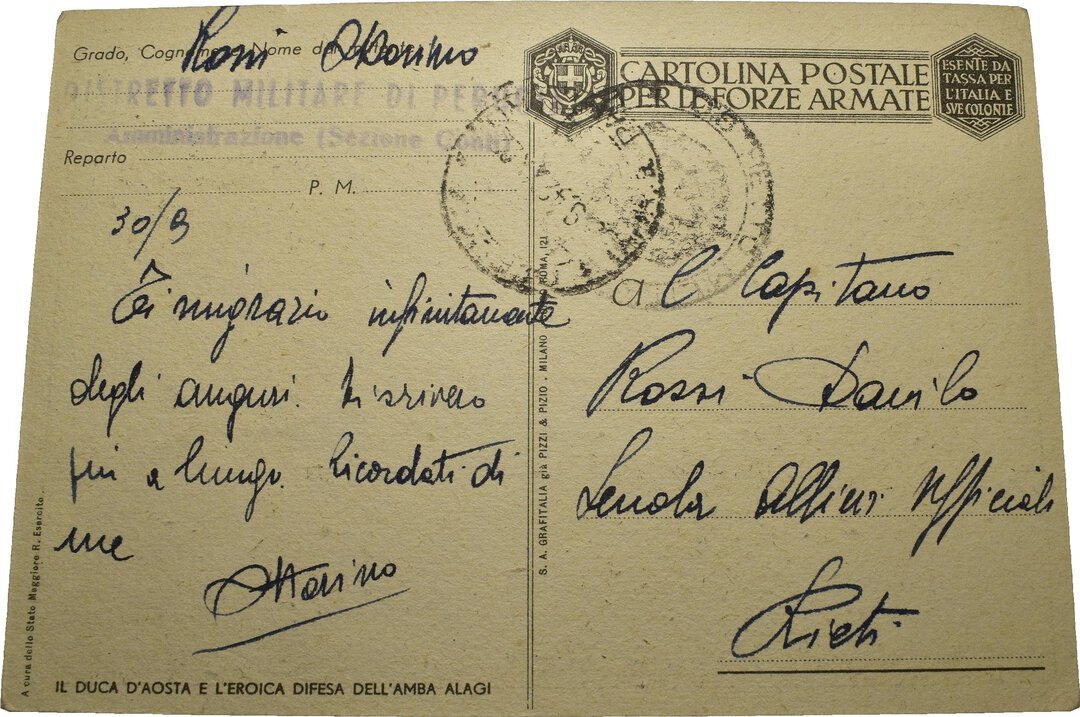 Grado, Cognome e Nome del
Rossi Marino
DISTRETTO MILITARE DI
Amministrazione (Sezione
Reparto
P. M.
30/9
Ti ringrazio infinitamente
degli auguri. Ti scriverò
più a lungo. Ricordati di
me
Marino
A cura dello Stato Maggiore R. Esercito.
IL DUCA D'AOSTA E L'EROICA DIFESA DELL'AMBA ALAGI
S. A. GRAFITALIA già PIZZI & PIZIO . MILANO ROMA, 121
CARTOLINA POSTALE
PER LE FORZE ARMATE
ESENTE DA
TASSA PER
L'ITALIA E
SVE COLONIE
al Capitano
Rossi Danilo
Scuola Allievi Ufficiali
Rieti